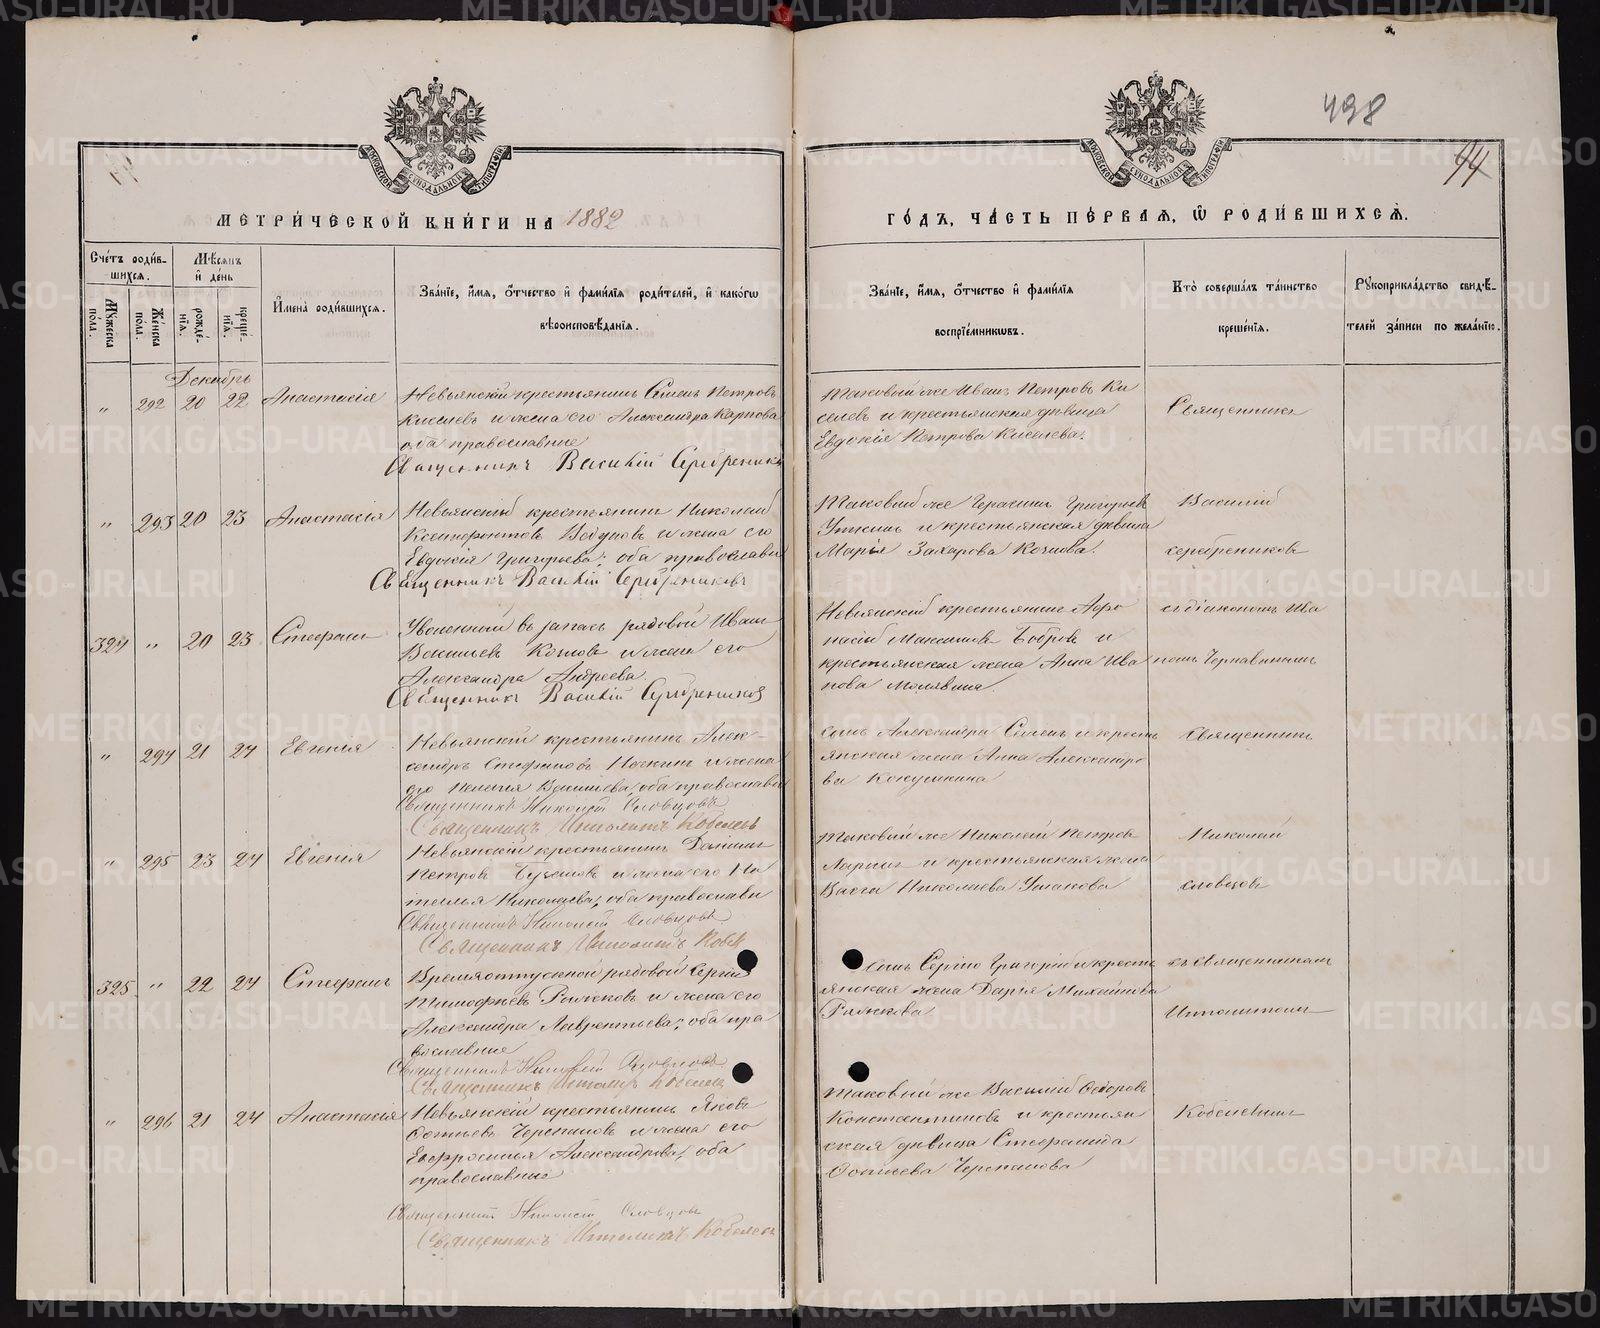 498
44
МОСКОВСКОЙ СѴНОДАЛЬНОЙ ТИПОГРАФІИ
МОСКОВСКОЙ СѴНОДАЛЬНОЙ ТИПОГРАФІИ
МЕТРИ́ЧЕСКОЙ КНИ́ГИ НА 1882
ГО́ДЪ, ЧА́СТЬ ПЕ́РВАЯ, Ѿ РОДИ́ВШИХСЯ.
Сче́тъ роди́в-
шихся.
Му́жеска по́ла.
Же́нска по́ла.
Мѣсяцъ
и де́нь
рожде́-
нія.
креще́-
нія.
Имена роди́вшихся.
Зва́ніе, и́мя, о́тчество и фами́лія роди́телей, и како́гѡ
вѣроисповѣ́данія.
Зва́ніе, и́мя, о́тчество и фами́лія
воспріе́мниковъ.
Кто̀ соверша́лъ та́инство
креще́нія.
Рукоприкла́дство свидѣ́-
телей за́писи по жела́нію.
Декабрь
„ 292 20 22 Анастасія
Невьянскій крестьянинъ Семенъ Петровъ
Киселевъ и жена его Александра Карпова
оба православные
Священникъ Василій Серебрениковъ
Таковый же Иванъ Петровъ Ки
селевъ и крестьянская дѣвица
Евдокія Петрова Киселева.
Священникъ
„ 293 20 23 Анастасія
Невьянскій крестьянинъ Николай
Ксенофонтовъ и жена его
Евдокія Григорьева; оба православн
Священникъ Василій Серебрениковъ
Таковый же Герасимъ Григорьевъ
Уткинъ и крестьянская дѣвица
Марья Захарова
Василій
серебрениковъ
324 „ 20 23 Стефанъ
Уволенный въ запасъ рядовой Иванъ
Васильевъ и жена его
Александра Андреева.
Священникъ Василій Серебрениковъ
Невьянскій крестьянинъ Афо
насій Максимовъ Бобровъ и
крестьянская жена Анна Ива
нова
съ діакономъ Ива
номъ Чернавинымъ
„ 294 21 24 Евгенія
Невьянскій крестьянинъ Алек-
сандръ Стефановъ и жена
его Пелагія Васильева; оба православн
Священникъ Николай Словцовъ
Священникъ Ипполитъ Кобелевъ
Сынъ Александра Семенъ и кресть
янская жена Анна Александро
ва Кокушкина
Священникъ
„ 295 23 24 Евгенія
Невьянскій крестьянинъ Даніилъ
Петровъ и жена его На
талья Николаева; оба православн
Священникъ Николай Словцовъ
Священникъ Ипполитъ Кобел
Таковый же Николай Петровъ
Ларинъ и крестьянская жена
Васса Николаева Ушакова
Николай
словцовъ
325 „ 22 24 Стефанъ
Времяотпускной рядовой Сергій
Тимофѣевъ и жена его
Александра Лаврентьева; оба пра
вославные
Священникъ Николай Словцовъ
Священникъ Ипполитъ Кобелевъ
Сынъ Сергію Григорій и кресть
янская жена Дарья Михайлова
съ Священникомъ
Ипполитомъ
„ 296 21 24 Анастасія
Невьянскій крестьянинъ Яковъ
Фотіевъ Черепановъ и жена его
Евфросинья Александрова; оба
православные
Священникъ Николай Словцовъ
Священникъ Ипполитъ Кобелевъ
Таковый же Василій Федоровъ
Константиновъ и крестьян
ская дѣвица Стефанида
Фотіева Черепанова
Кобелевымъ
METRIKI.GASO-URAL.RU